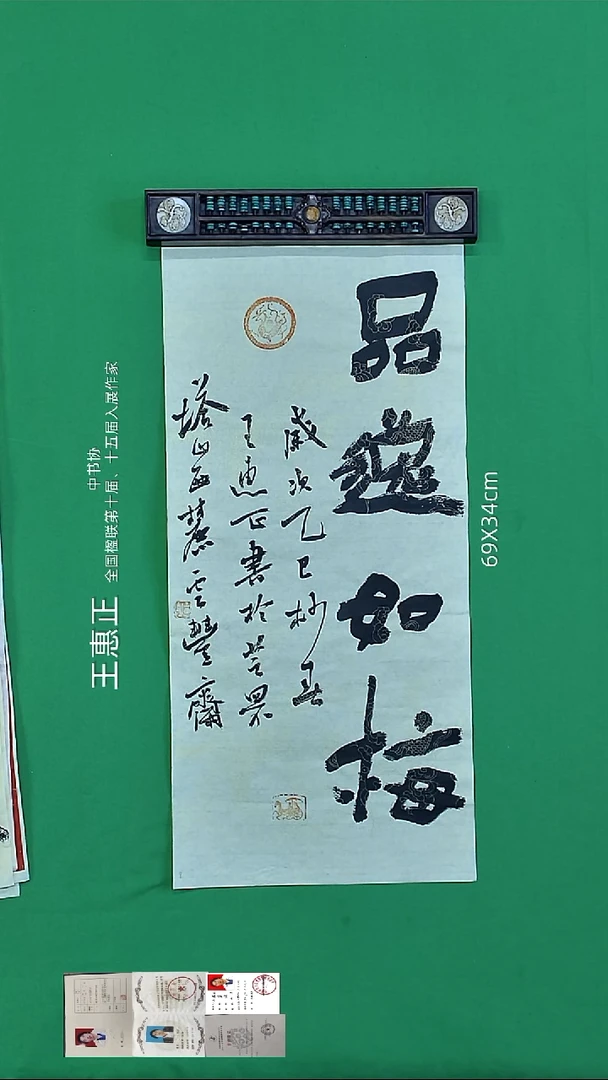 品蕴如梅
岁次乙巳杪春
王惠正书于芝罘
塔山西麓云慧斋
王惠正
中书协
全国楹联第十届、十五届入展作家
69X34cm